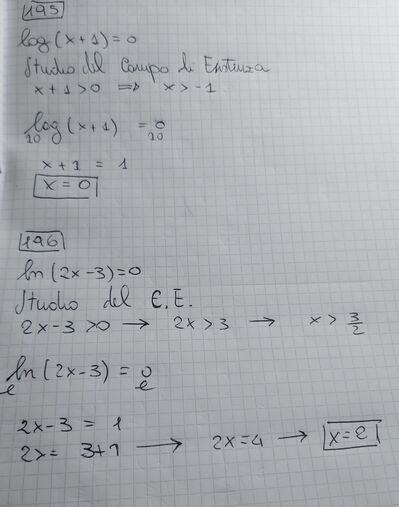 195
log(x+1)=0
Studio del Campo di Esistenza
x+1>0 ⇒ x>-1
10^log(x+1) = 10^0
x+1 = 1
x=0
196
ln(2x-3)=0
Studio del C.E.
2x-3>0 → 2x>3 → x>3/2
e^ln(2x-3) = e^0
2x-3 = 1
2x= 3+1 → 2x=4 → x=2